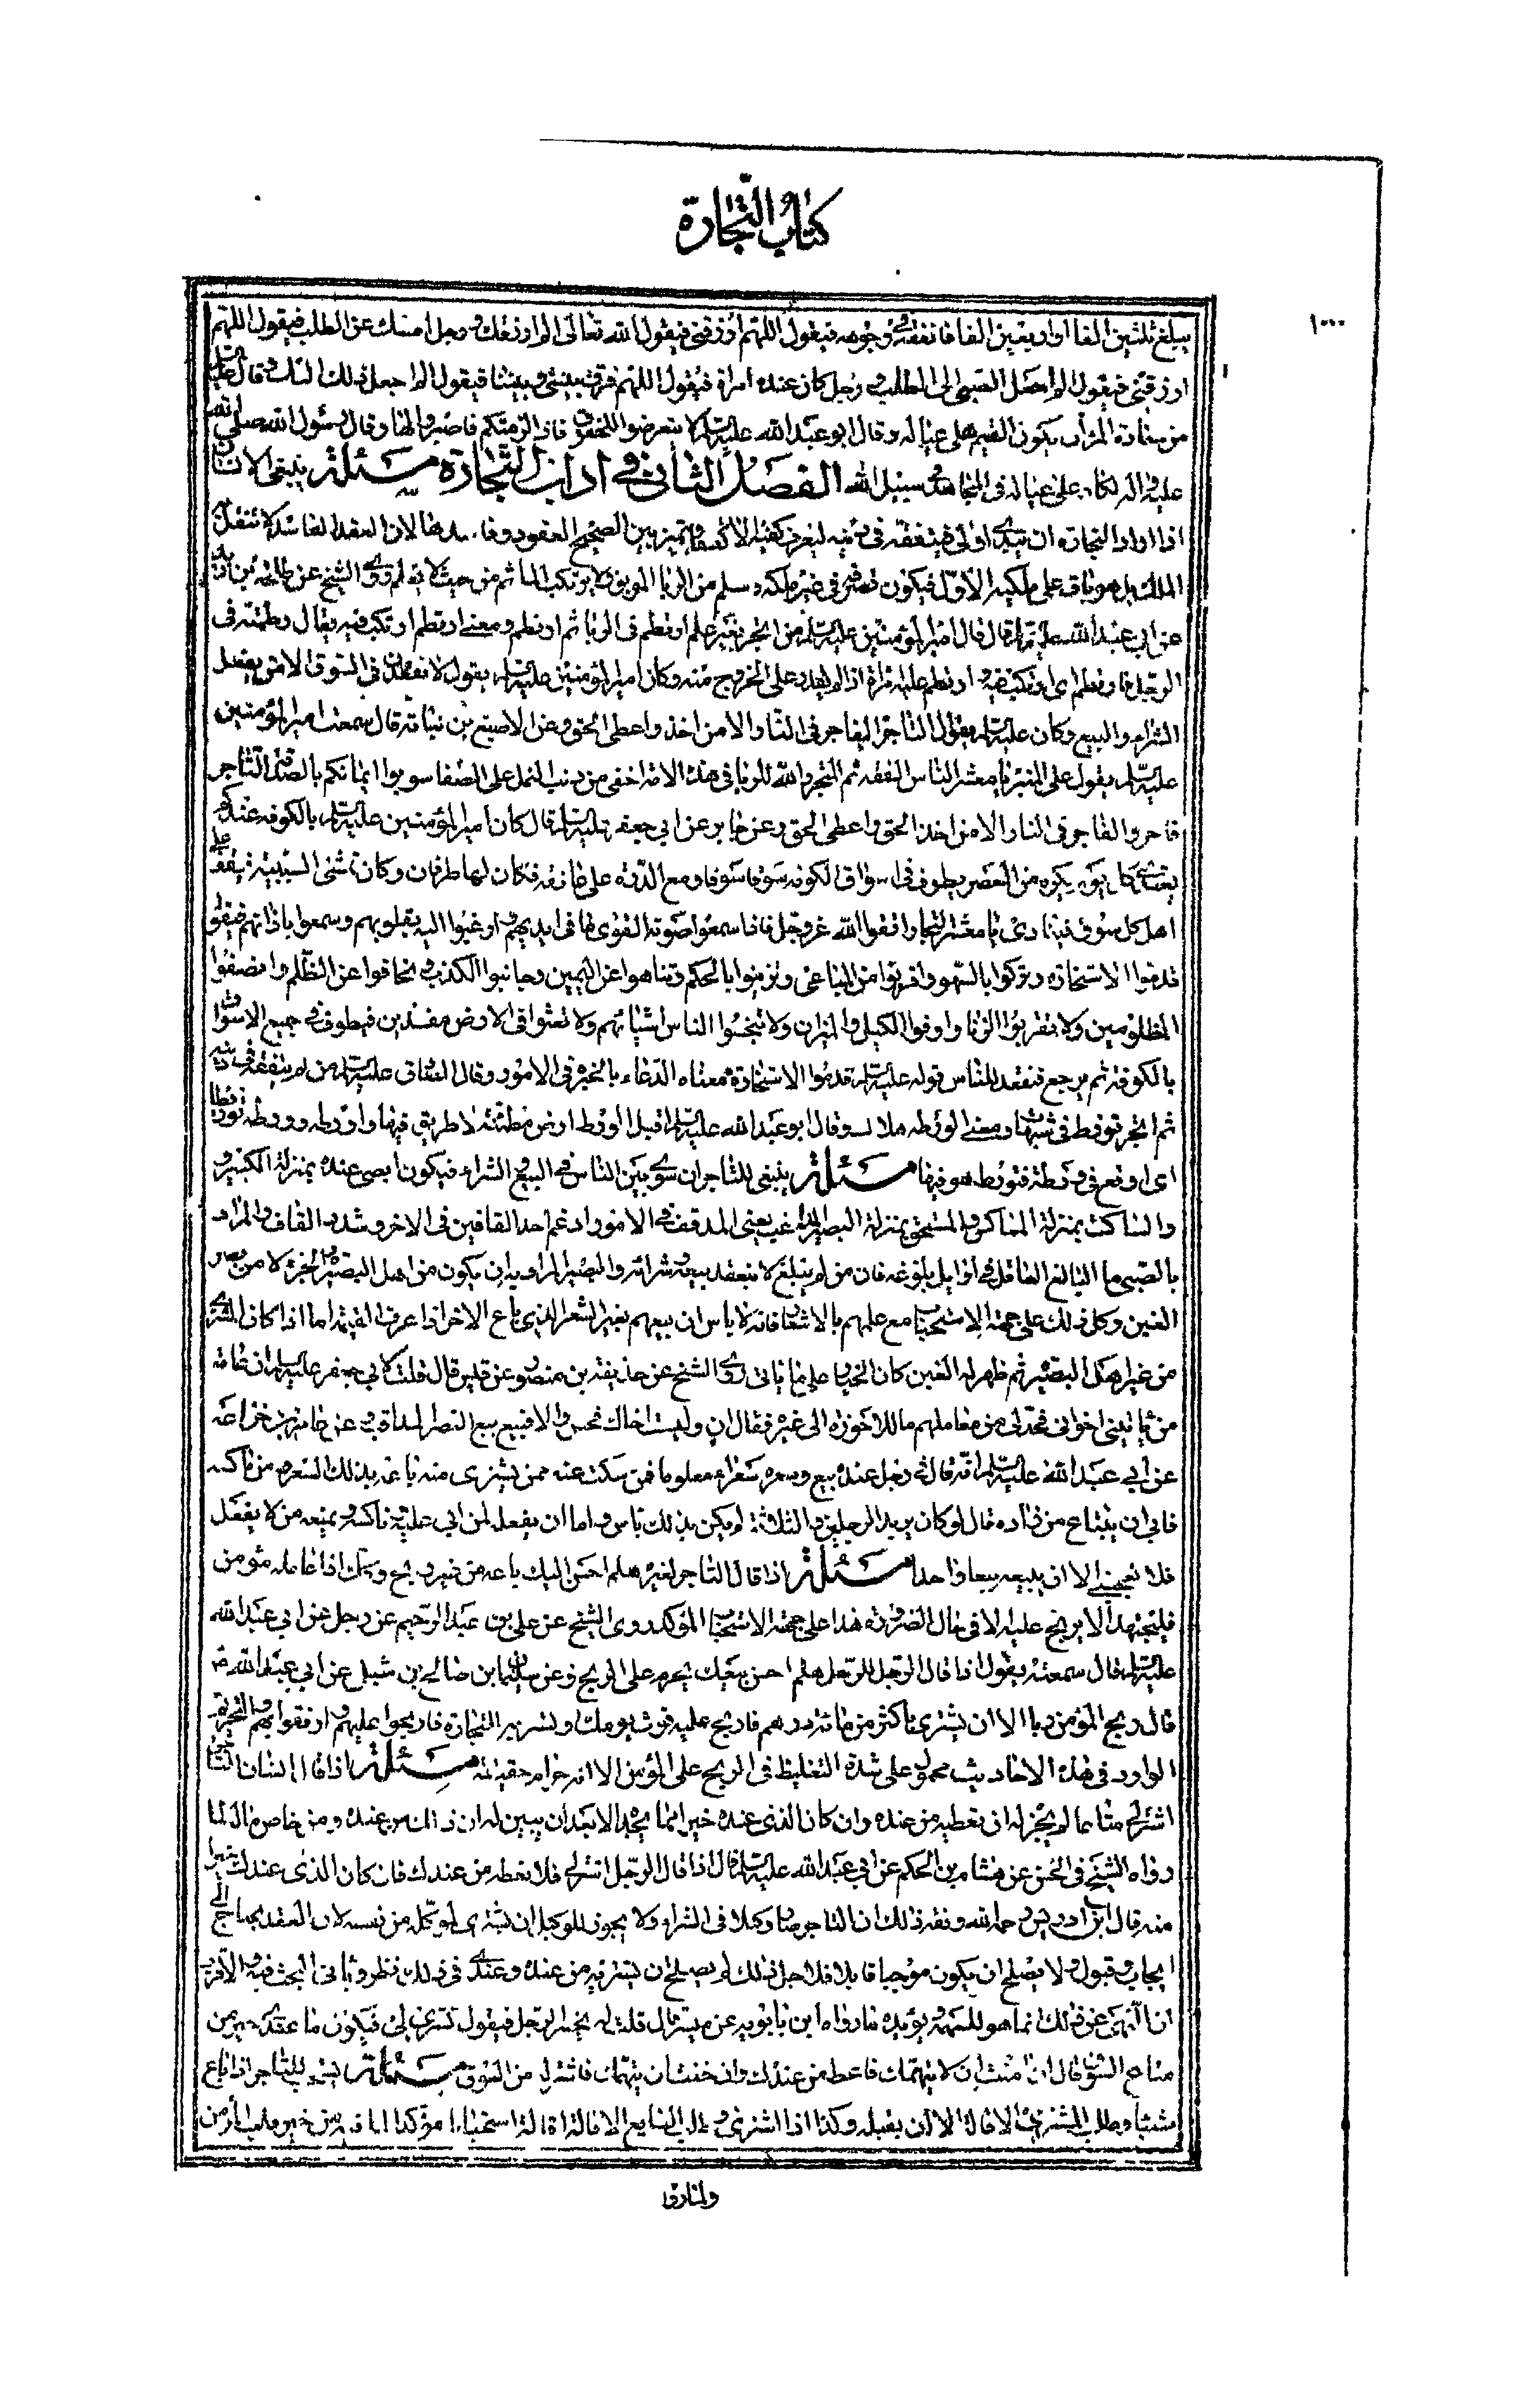 كتاب التجارة
١٠٠٠
يبلغ ثلثين الفا او اربعين الفا فانفقه في وجوهه فيقول اللهم ارزقني فيقول الله تعالى الم ارزقك ورجل امسك عن الطلب فيقول اللهم
ارزقني فيقول الم اجعل السبيل الى الطلب ورجل كان عنده امراة فيقول اللهم فرق بيني وبينها فيقول الم اجعل ذلك اليك وقال عليه السلم
من سعادة المرأ ان يكون القيم على عياله وقال ابو عبد الله عليه السلم لا تتعرضوا للحقوق فاذا لزمتكم فاصبروا لها وقال رسول الله صلى الله
عليه واله الكاد على عياله كالمجاهد في سبيل الله الفصل الثاني في اداب التجارة مسئلة ينبغي للانسان
اذا اراد التجارة ان يبتدى اولا فيتفقه في دينه ليعرف كيفية الاكتساب ويميز بين الصحيح العقود وفاسدها لان العقد الفاسد لا ينتقل به
الملك بل هو باق على ملكية الاول فيكون تصرفه في غير ملكه ويسلم من الربا الموبق ولا يرتكب الماثم من حيث لا يعلم روى الشيخ عن طلحة بن زيد
عن ابي عبد الله عليه السلم قال قال امير المؤمنين عليه السلم من اتجر بغير علم ارتطم في الربا ثم ارتطم ومعنى ارتطم ارتبك فيه يقال رطمته في
الوحل فارتطم اى ارتبك فيه وارتطم عليه امره اذا لم يقدر على الخروج منه وكان امير المؤمنين عليه السلم يقول لا يقعدن في السوق الا من يعقل
الشراء والبيع وكان عليه السلم يقول التاجر الفاجر في النار الا من اخذ واعطى الحق وعن الاصبغ بن نباتة قال سمعت امير المؤمنين
عليه السلم يقول على المنبر يا معشر الناس الفقه ثم المتجر والله للربا في هذه الامة اخفى من دبيب النمل على الصفا شوبوا ايمانكم بالصدق التاجر
فاجر والفاجر في النار الا من اخذ الحق واعطى الحق وعن جابر عن ابي جعفر عليه السلم قال كان امير المؤمنين عليه السلم بالكوفة عندكم
يغتدى كل يوم بكرة من القصر يطوف في اسواق الكوفة سوقا سوقا ومعه الدرة على عاتقه وكان لها طرفان وكان تسمى السبيبة فيقف على
اهل كل سوق فينادي يا معشر التجار اتقوا الله عز وجل فاذا سمعوا صوته القوا ما في ايديهم وارعوا اليه بقلوبهم وسمعوا باذانهم فيقول
قدموا الاستخارة وتبركوا بالسهولة واقتربوا من المبتاعين وتزينوا بالحلم وتناهوا عن اليمين وجانبوا الكذب وتجافوا عن الظلم وانصفوا
المظلومين ولا تقربوا الربا واوفوا الكيل والميزان ولا تبخسوا الناس اشيائهم ولا تعثوا في الارض مفسدين فيطوف في جميع الاسواق
بالكوفة ثم يرجع فيقعد للناس قوله عليه السلم قدموا الاستخارة معناه الدعاء بالخيرة في الامور وقال الصادق عليه السلم من لم يتفقه في دينه
ثم اتجر تورط في شبهات ومعنى الورطة هلاك وقال ابو عبد الله عليه السلم اقبل الورط ارض مطمئنة لا طريق فيها واورطه وورطه توريطا
اى اوقع في ورطة فتورط هو فيها مسئلة ينبغي للتاجر ان يسوى بين الناس في البيع والشراء فيكون الصبي عنده بمنزلة الكبير
والساكت بمنزلة المماكس والمستحى بمنزلة البصير المداق يعنى المدقق في الامور ادغم احد القافين في الاخر وشدد القاف والمراد
بالصبي هنا البالغ العاقل في اوايل بلوغه فان من لم يبلغ لا ينعقد بيعه وشرائه والبصير المراد به ان يكون من اهل البصيرة والخبرة لا من يصار
الغبن وكل ذلك على جهة الاستحباب مع علمهم بالاسعار فانه لا باس ان يبيعهم بغير السعر الذي باع الاخر اذا عرف القيمة اما اذا كان المشترى
من غير اهل البصيرة ثم ظهر له الغبن كان الخيار على ما ياتى روى الشيخ عن حذيفة بن منصور عن قيس قال قلت لابي جعفر عليه السلم ان عامة
من ياتيني اخواني فحد لي من معاملتهم ما لا اجوزه الى غيره فقال ان وليت اخاك فحسن والا فبع بيع البصير المداق وعن عامر بن خزاعة
عن ابي عبد الله عليه السلم انه قال في رجل عنده بيع وسعره سعرا معلوما فمن سكت عنه ممن يشترى منه باعه بذلك السعر ومن ماكسه
فابى ان يبتاع منه زاده قال لو كان يزيد الرجلين والثلثة لم يكن بذلك باس واما ان يفعل لمن ابى عليه وماكسه ويمنعه من لا يفعل
فلا يعجبني الا ان يبيعه بيعا واحدا مسئلة اذا قال التاجر لغيره هلم احسن اليك باعه من غير ربح وكذلك اذا عامله مؤمن
فليجتهد الا يربح عليه الا في حال الضرورة هذا على جهة الاستحباب المؤكد روى الشيخ عن علي بن عبد الرحيم عن رجل عن ابي عبد الله
عليه السلم قال سمعته يقول اذا قال الرجل للرجل هلم احسن بيعك يحرم عليه الربح وعن سليمان بن صالح بن شبل عن ابي عبد الله ع
قال ربح المؤمن ربا الا ان يشترى باكثر من مائة درهم فاربح عليه قوت يومك او يشتريه للتجارة فاربحوا عليهم وارفقوا بهم والتحريم
الوارد في هذه الاحاديث محمول على شدة التغليظ في الربح على المؤمن لا انه حرام حقيقة مسئلة اذا قال انسان للتاجر
اشتر لي متاعا لم يجز له ان يعطيه من عنده وان كان الذى عنده خيرا مما يجده الا بعد ان يبين له ان ذلك من عنده ومن خاص ماله لما
رواه الشيخ في الحسن عن هشام بن الحكم عن ابي عبد الله عليه السلم قال اذا قال الرجل اشتر لي فلا تعطه من عندك فان كان الذى عندك خيرا
منه قال ابن ادريس رحمه الله وفقه ذلك ان التاجر صار وكيلا في الشراء ولا يجوز للوكيل ان يشترى لموكله من نفسه لان العقد يحتاج الى
ايجاب وقبول ولا يصلح ان يكون موجبا قابلا فلاجل ذلك لم يصلح ان يشترى من عنده وعندى في ذلك نظر وياتى البحث فيه والاقرب
ان النهى عن ذلك انما هو للتهمة يؤيده ما رواه ابن بابويه عن ميسر قال قلت له يجيئ الرجل فيقول تشترى لى فيكون ما عندى خير من
متاع السوق قال ان امنت ان لا يتهمك فاعط من عندك وان خفت ان يتهمك فاشتر له من السوق مسئلة يستحب للتاجر اذا باع
شيئا وطلب المشترى الاقالة الا ان يقبله وكذا اذا اشترى وطلب البايع الاقالة اقاله استحبابا مؤكدا
ولما رواه